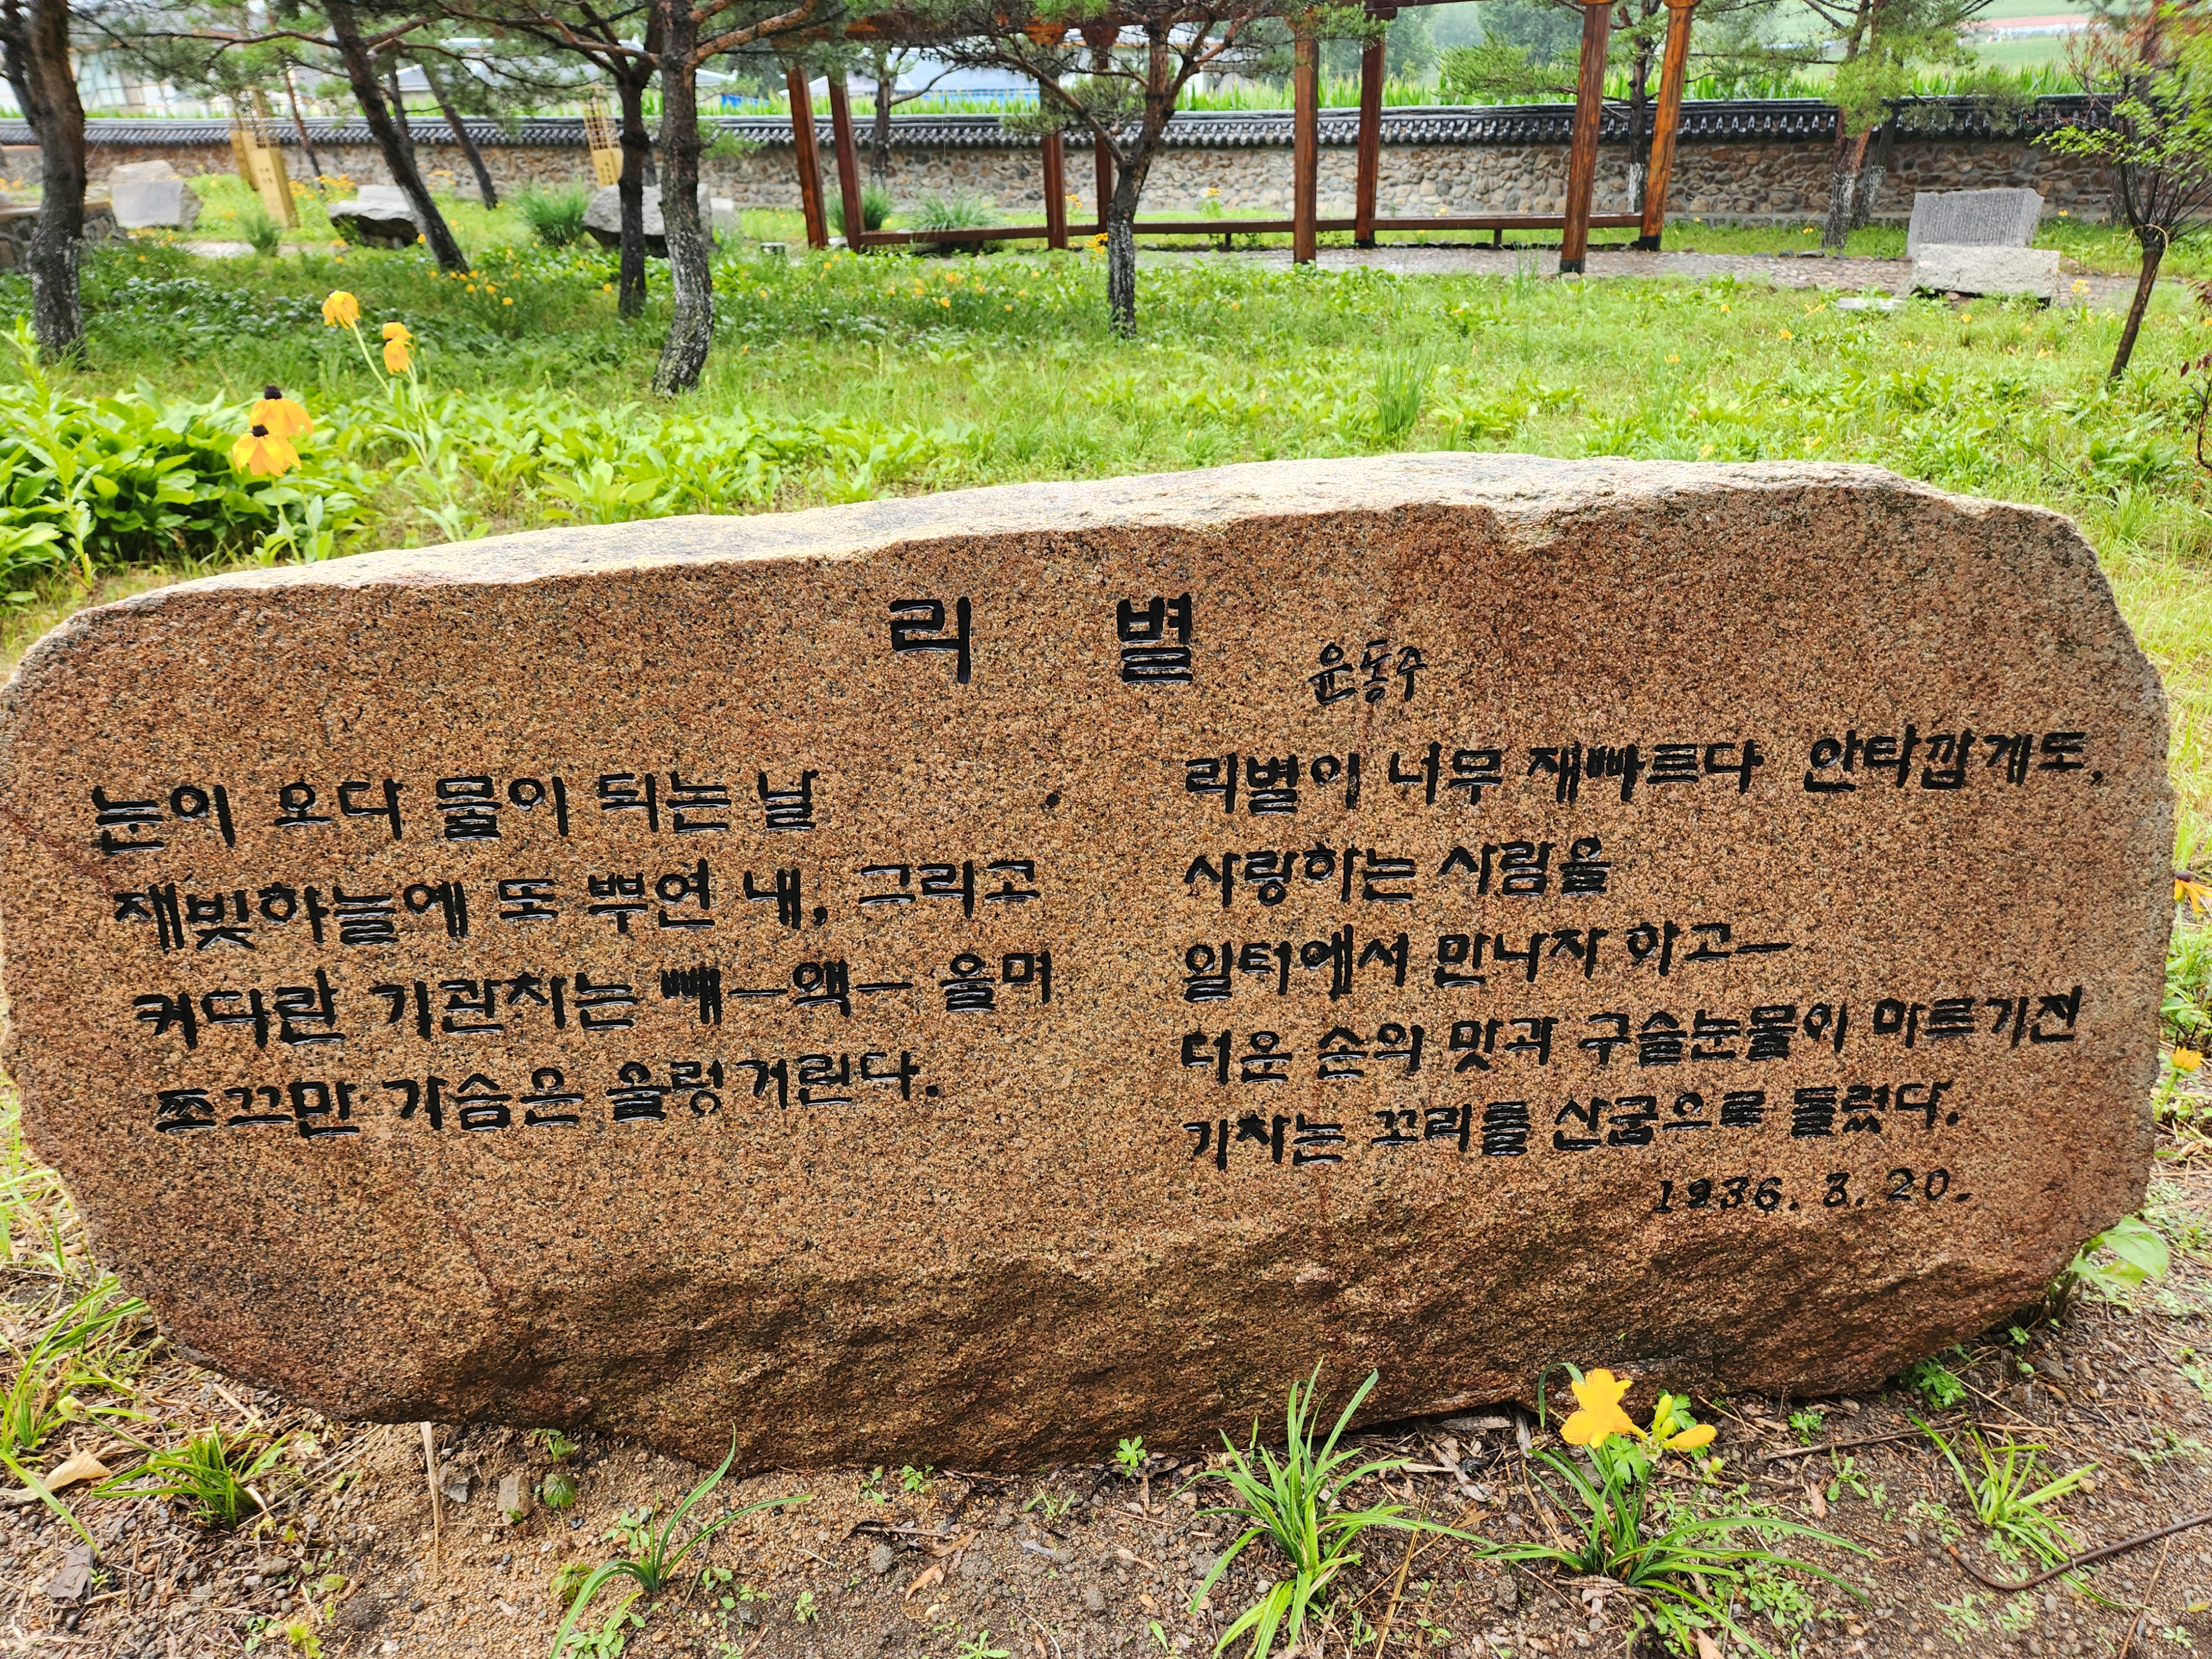 리 별
윤동주
눈이 오다 물이 되는 날
재빛하늘에 또 뿌연 내, 그리고
커다란 기관차는 빼—액— 울며
쪼끄만 가슴은 울렁거린다.
리별이 너무 재빠르다 안타깝게도,
사랑하는 사람을
일터에서 만나자 하고—
더운 손의 맛과 구슬눈물이 마르기전
기차는 꼬리를 산굽으로 돌렸다.
1936. 3. 20.